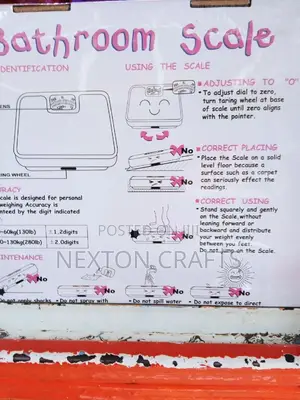 Bathroom Scale
DENTIFICATION
USING THE SCALE
ADJUSTING TO "O"
• To adjust dial to zero,
turn taring wheel at base
of scale until zero aligns
with the pointer.
NG WHEEL
No
CORRECT PLACING
• Place the Scale on a solid
level floor because a
surface such as a carpet
can seriously effect the
readings.
No
URACY
cale is designed for personal
weighing Accuracy is
nteed by the digit indicated
No
CORRECT USING
• Stand squarely and gently
on the Scale,without
leaning forward or
backward and distribute
your weight evenly
between you feet.
Do not jump on the Scale.
~60kg(130lb) :1.2digits
0~130kg(280lb) : 2.0digits
No
POSTED ON JIJI
NEXTON CRAFTS
INTENANCE
No
No
No
No
Do not apply shocks
• Do not spray with
• Do not spill water
• Do not expose to direct